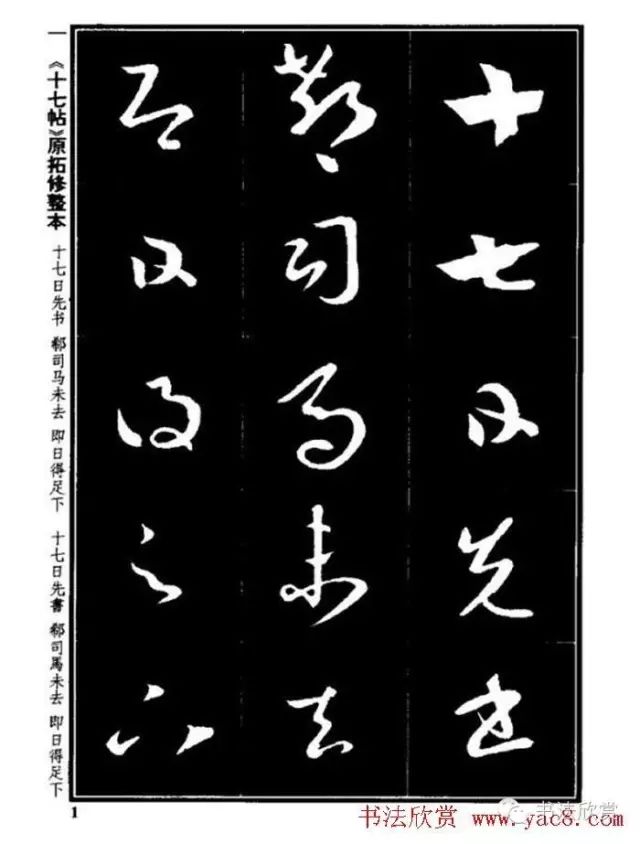 十七日先书
郗司马未去
即日得足下
一 《十七帖》原拓修整本 十七日先书 郗司马未去 即日得足下 十七日先書 郗司馬未去 即日得足下
1
书法欣赏 www.yac8.com
书法欣赏